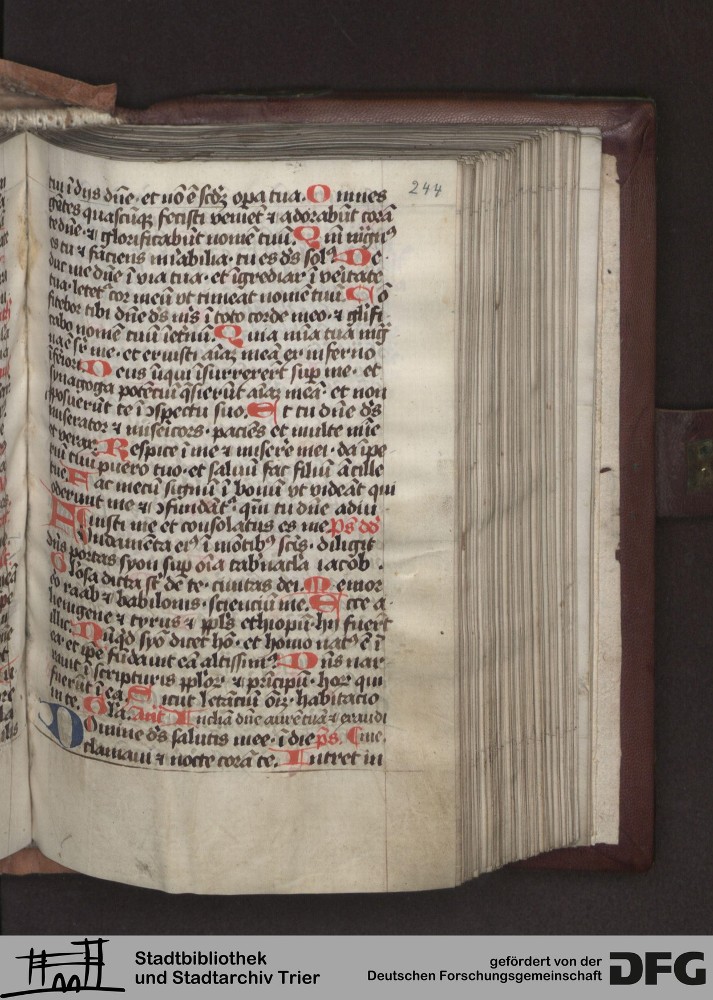 244
tui ī dijs dn̄e · et nō ē scdꝫ opa tua. O mnes
gētes quascūqꝫ fecisti veniēt ⁊ adorabūt corā
te dn̄e · ⁊ glorificabūt nomē tuū. Q m̄ magnꝰ
es tu ⁊ faciens mirabilia · tu es dꝰs solꝰ D e
duc me dn̄e ī via tua · et īgrediar ī veritate
tua · letet᷑ cor meū vt timeat nomē tuū. C ō
fitebor tibi dn̄e ds mꝰs ī toto corde meo · ⁊ glīfi
cabo nomē tuū īet̄nū. Q uia mīa tua mḡ
na ē sr̄ me · et eruisti aīaꝫ meā ex inferno
īferiori. D eus īiqui īsurrexert̄ sup me · et
synagoga potētiū q̄sierūt aīaꝫ meā · et non
ꝓposuerūt te ī ↄspectu suo. E t tu dn̄e ds
miserator ⁊ misēicors · paciēs et multe mīe
et verax R espice ī me ⁊ miserē mei · da īpe
riū tuū puero tuo · et saluū fac filiū ācille
tue. F ac mecū signū ī bonū vt videāt qui
oderunt me ⁊ ↄfundāt᷑ · qm̄ tu dn̄e adiu
uisti me et consolatus es me ps dd
F undamēta eiꝰ ī mōtibꝰ scīs · diligit
dn̄s portas syon sup oīa tabnacla iacob ·
G losa dicta st̄ de te · ciuitas dei. M emor
ero raab ⁊ babilonis · scienciū me. E cce a
lienigene ⁊ tyrus ⁊ ppls ethiopū · hij fuert̄
illic. N ūqd syō dicet hō · et homo natꝰ ē ī
ea · et ipe fūdauit eā altissimꝰ D n̄s nar
rauit ī scripturis pplorꝫ ⁊ prīcipū · horꝫ qui
fuerūt ī ea. S icut letāciū oīꝫ · habitacio
in te. Gl̄a. ant̄ I nclīa dn̄e aurē tuā ⁊ exaudi
D omine ds salutis mee · ī die ps. me.
clamaui ⁊ nocte corā te. I ntret in
Stadtbibliothek
und Stadtarchiv Trier
gefördert von der
Deutschen Forschungsgemeinschaft
DFG